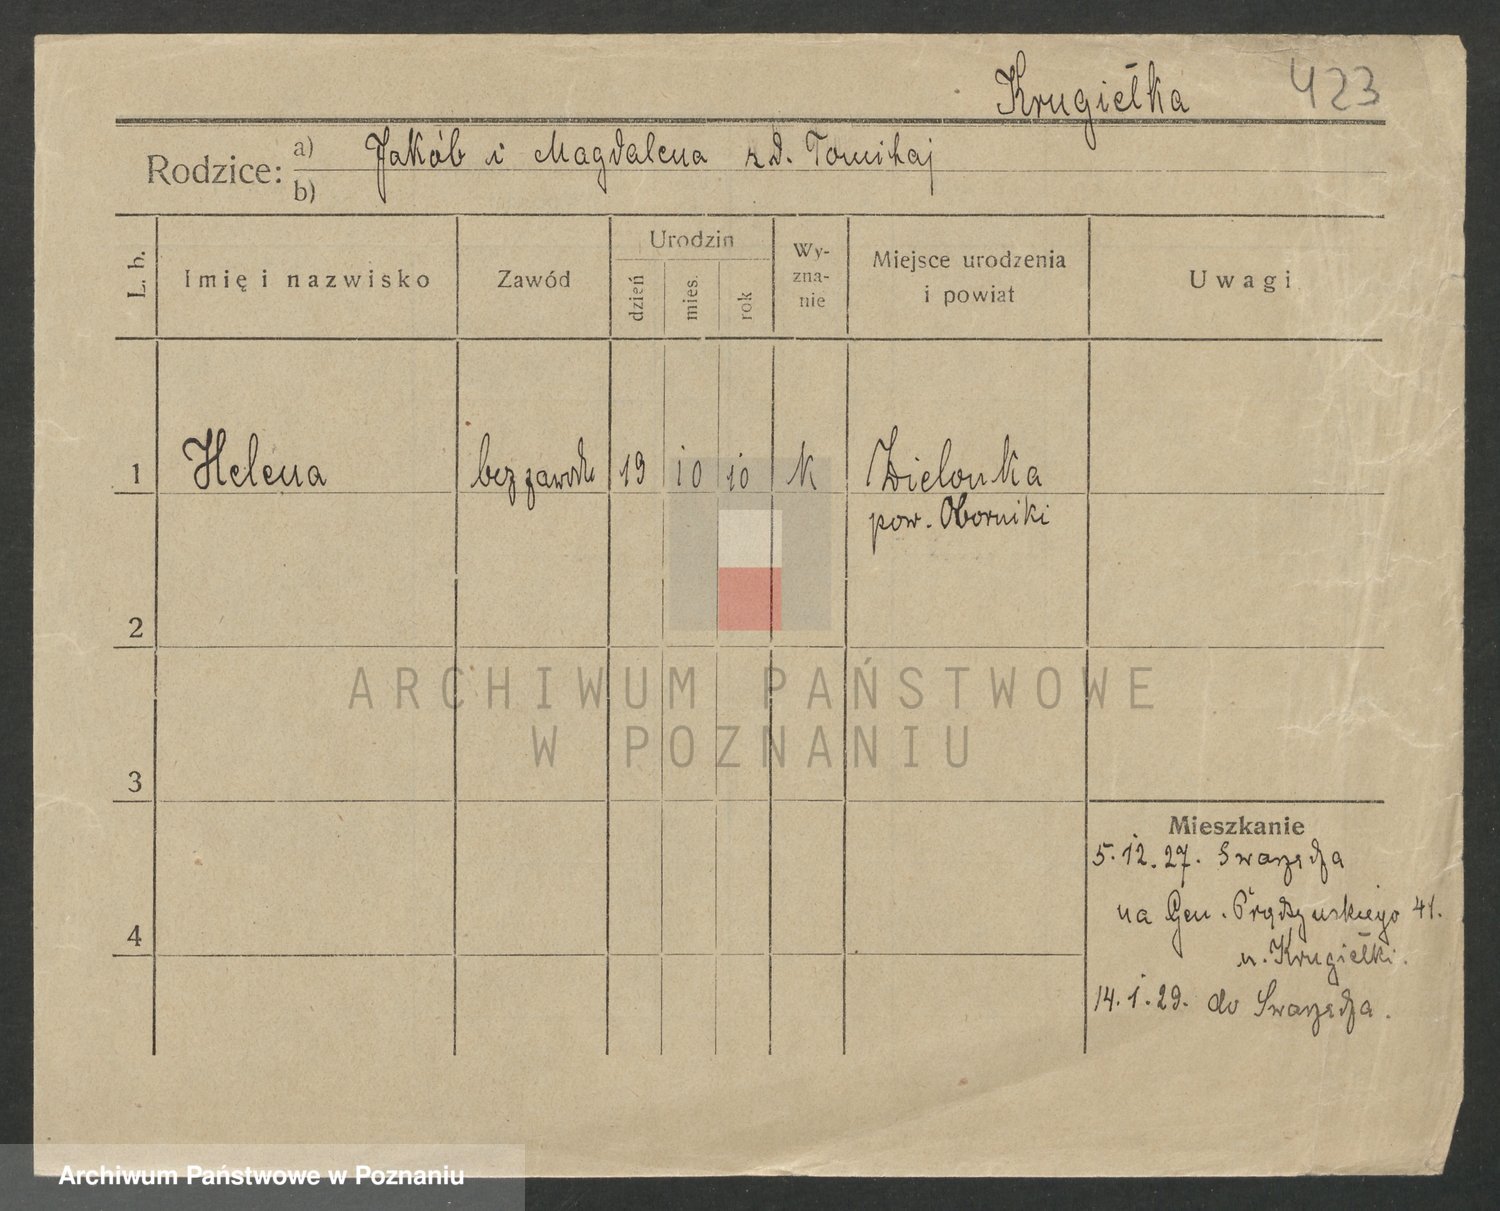 Krugiełka 423
Rodzice: a) Jakób i Magdalena zd. Tomihaj
b)
L. b. Imię i nazwisko Zawód Urodzin dzień mies. rok Wy-zna-nie Miejsce urodzenia i powiat Uwagi
1 Helena bez zawodu 19 10 10 k Zielonka
pow. Oborniki
2
ARCHIWUM PAŃSTWOWE
W POZNANIU
3
Mieszkanie
5.12.27. Swarzędza
na Gen. Prądzyńskiego 41.
u. Krugiełki.
4
14.1.29. do Swarzędza.
Archiwum Państwowe w Poznaniu